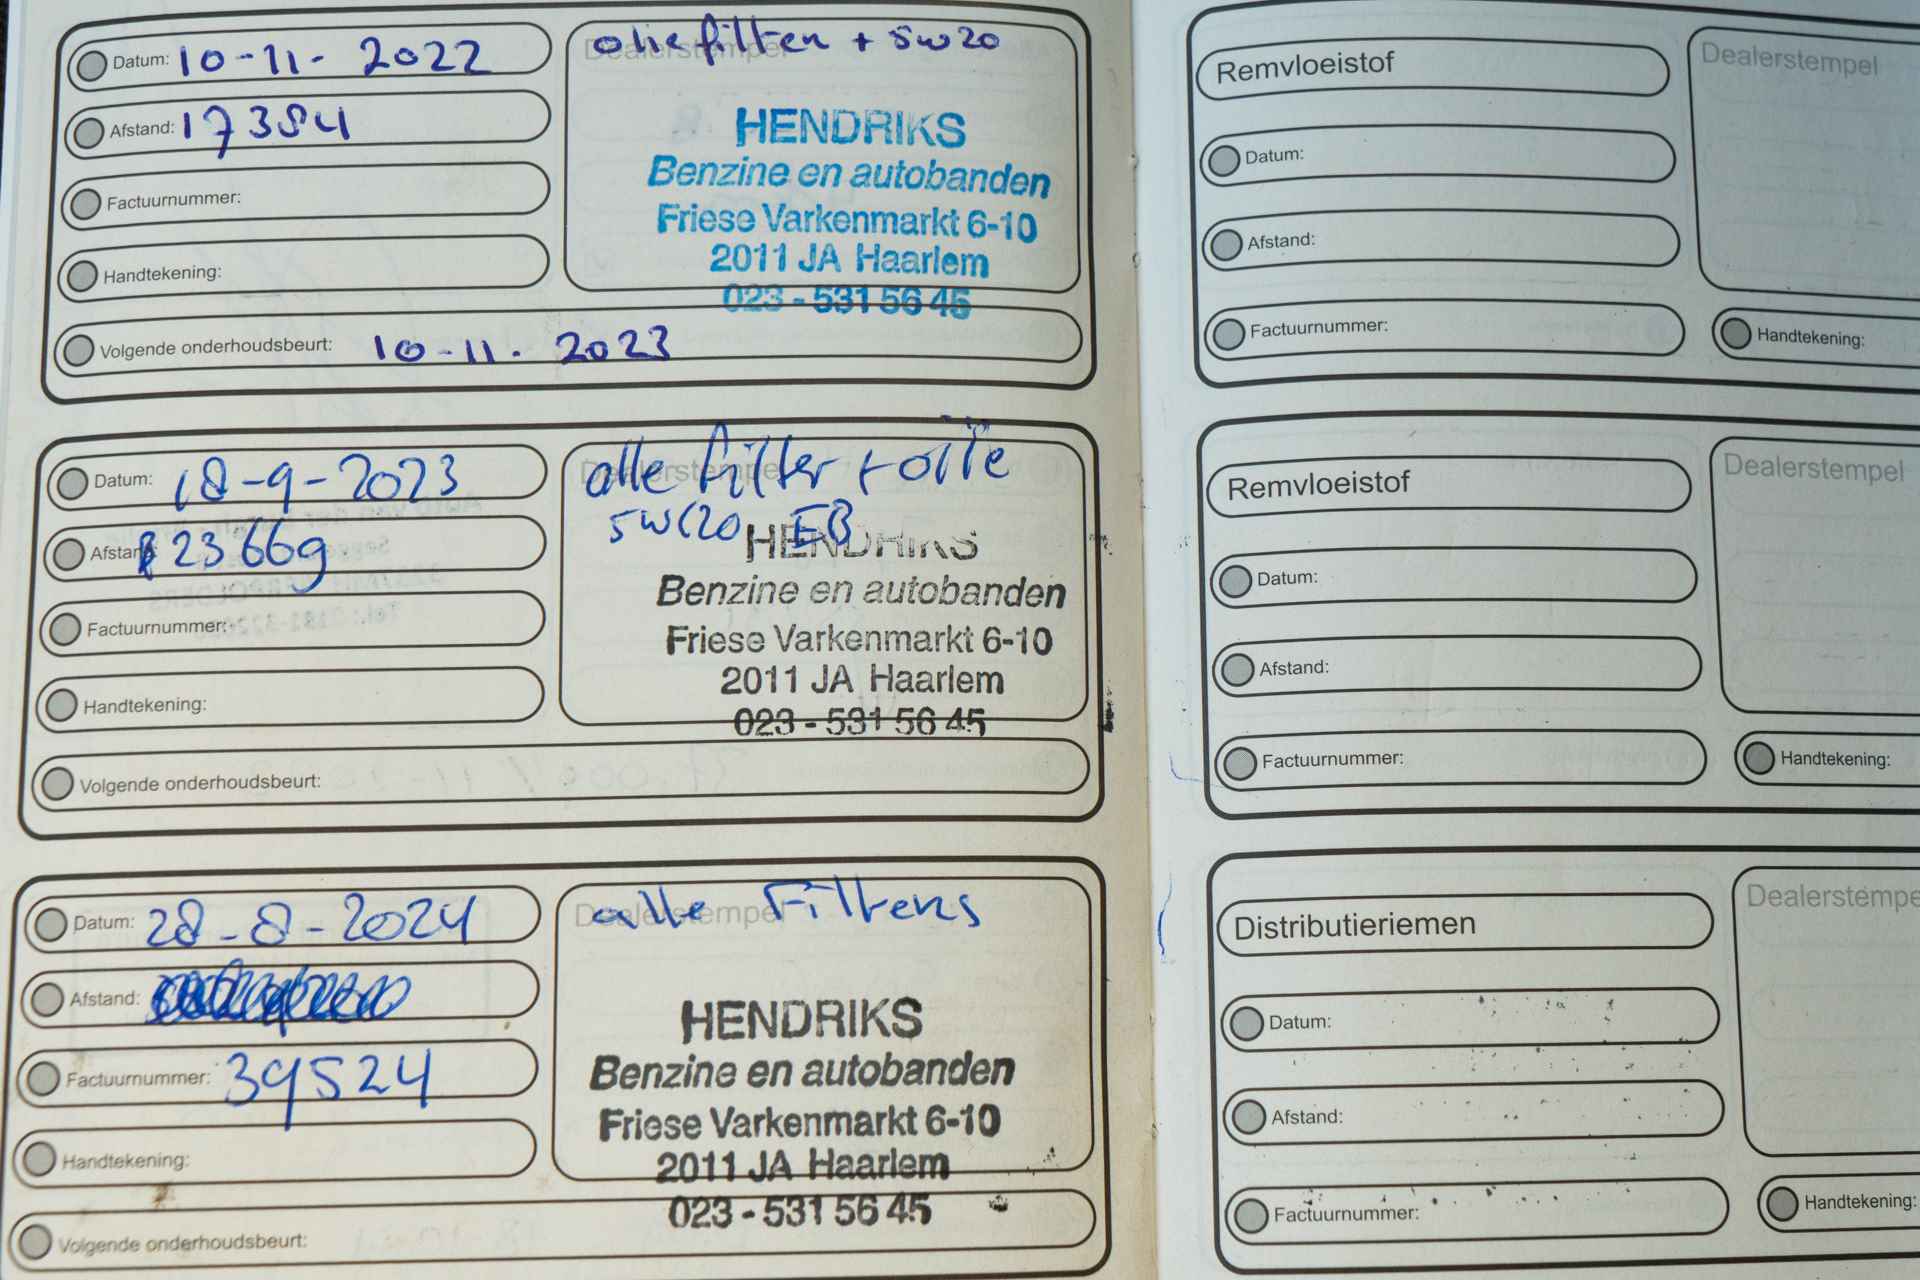 Datum: 10-11-2022
Afstand: 17384
Factuurnummer:
Handtekening:
Volgende onderhoudsbeurt: 10-11-2023
Dealerstempel
oliefilter + 5w20
HENDRIKS
Benzine en autobanden
Friese Varkenmarkt 6-10
2011 JA Haarlem
023 - 531 56 45
Datum: 18-9-2023
Afstand: 23669
Factuurnummer:
Handtekening:
Volgende onderhoudsbeurt:
Dealerstempel
alle filter + olie
5w20 EB
HENDRIKS
Benzine en autobanden
Friese Varkenmarkt 6-10
2011 JA Haarlem
023 - 531 56 45
Datum: 28-8-2024
Afstand:
Factuurnummer: 39524
Handtekening:
Volgende onderhoudsbeurt:
Dealerstempel
alle Filters
HENDRIKS
Benzine en autobanden
Friese Varkenmarkt 6-10
2011 JA Haarlem
023 - 531 56 45
Remvloeistof
Datum:
Afstand:
Factuurnummer:
Dealerstempel
Handtekening:
Remvloeistof
Datum:
Afstand:
Factuurnummer:
Dealerstempel
Handtekening:
Distributieriemen
Datum:
Afstand:
Factuurnummer:
Dealerstempe
Handtekening: